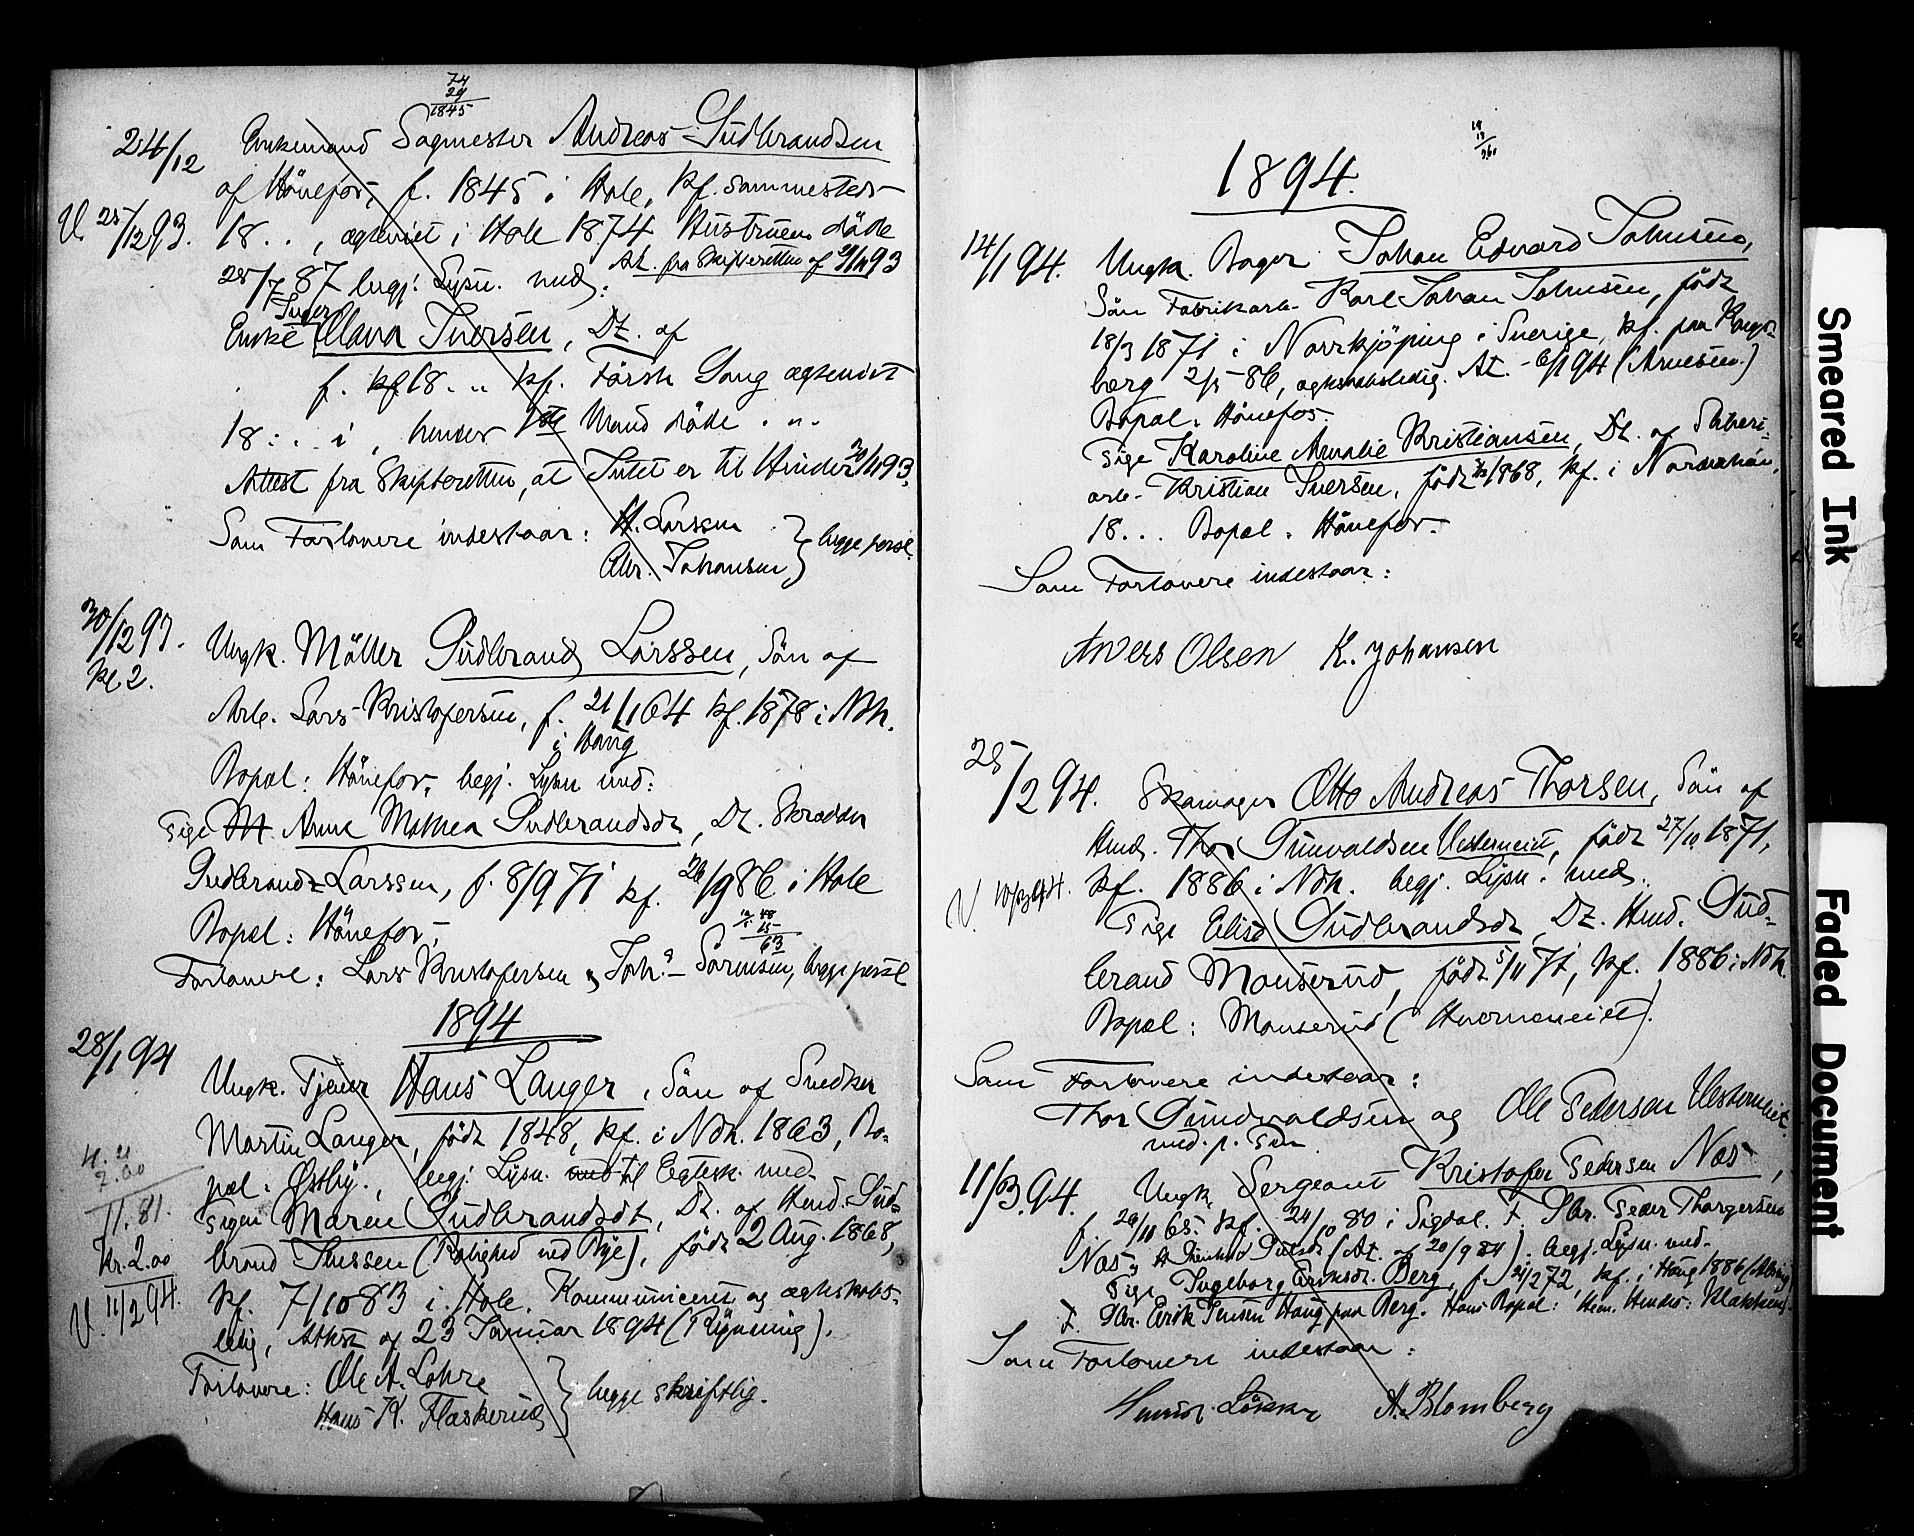 74
29
1845
24/12 Enkemand Sagmester Andreas Gudbrandsen
af Hönefos, f. 1845 i Hole, kf. sammesteds
V. 28/12 93. 18.., ægteviet i Hole 1874 Hustruen döde
28/7 87 begj. Lysn. med:
At. fra Skifteretten af 93
Enke Olava Iversen, Dt. af
f. kf 18.. kf. Förste Gang ægteviet
18.. i , hendes Mand döde . "
Attest fra Skifteretten, at Intet er til Hinder 93.
Som Forlovere indestaar: H. Larssen
Alb. Johansen } begge persl.
30/12 93. Ungk. Möller Gudbrand Larssen, Sön af
Kl. 2.
Arb. Lars Kristofersen, f. 21/1 64 kf. 1878 i Ndh.
i Haug
Bopæl: Hönefos, begj. Lysn med:
Pige M. Anne Mathea Gudbrandsdt, Dt. Skrædder
Gudbrand Larssen, f. 8/9 71 kf. 26/9 86 i Hole
Bopæl: Hönefos,
63
Forlovere: Lars Kristofersen Joh.s Sörensen, begge persl
1894
28/1 94 Ungk. Tjener Hans Langer, Sön af Snedker
Martin Langer, födt 1848, kf. i Ndh. 1863, Bo-
pæl: Østby., begj. Lysn. med til Egtesk. med
Pigen Maren Gudbrandsdt, Dt. af Hmd. Gud-
11.81.
brand Jenssen (Rolighed ved Bye), födt 2 Aug. 1868,
Kr. 2.00
kf. 7/10 83 i Hole. Kommuniceret og ægteskabs-
V. 11/2 94.
ledig, Attest af 23 Januar 1894 (Rÿnning).
Forlovere: Ole A. Lohre
Hans K. Flaskerud } begge skriftlig.
1894.
14/1 94. Ungk. Bager Johan Edvard Johnsen,
Sön Fabrikarb. Karl Johan Johnsen, födt
18/3 1871 i Norrkjöping i Sverige, kf. paa Kongs-
berg 2/5 86, ægteskabsledig. At. 6/1 94 (Arnesen.)
Bopæl: Hönefos.
Pige Karoline Amalie Kristiansen, Dt. af Sliberi-
arb. Kristian Iversen, födt 1868, kf. i Norderhov,
18... Bopæl: Hönefos.
Som Forlovere indestaar:
Anders Olsen K. Johansen
25/2 94. Skomager Otto Andreas Thorsen, Sön af
Hmd. Thor Gunvaldsen Vesterneiet, födt 27/10 1871,
V. 10/3 94. kf. 1886 i Ndh. begj. Lysn. med
Pige Elise Gudbrandsdt, Dt. Hmd. Gud-
brand Monserud, födt 5/11 71, kf. 1886 i Ndh.
Bopæl: Monserud (Kverneneiet).
Som Forlovere indestaar:
Thor Gundvaldsen og Ole Pedersen Vesterneiet.
med. p. Pen
11/3.94. Ungk. Sergeant Kristofer Pedersen Næs,
f. 26/11 65. kf. 24/10 80 i Sigdal. F. Gbr. Peder Thorgersen
Næs (At. af 20/9 84). begj. Lysn. med
Pige Ingeborg Eriksdt. Berg, f. 21/2 72, kf. i Haug 1886
F. Gbr. Erik Jensen Haug paa Berg. Hans Bopæl: Hem. Hendes: Klækken.
Som Forlovere indestaar:
Lökke A. Blomberg
Smeared Ink
Faded Document